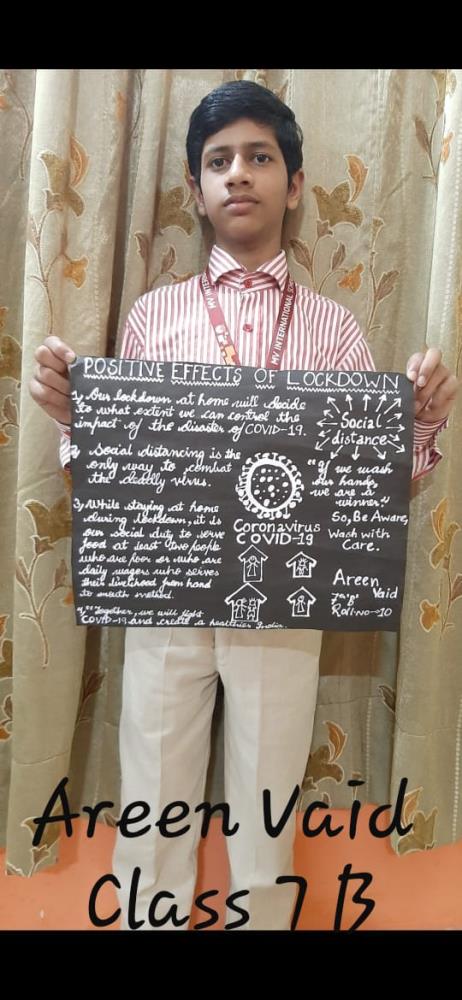 MV INTERNATIONAL SCHO
MV INTERN
POSITIVE EFFECTS OF LOCKDOWN
1, Our lockdown at home will decide
to what extent we can control the
impact of the disaster of COVID-19.
2, Social distancing is the
only way to combat
the deadly virus.
3, While staying at home
during lockdown, it is
our social duty to serve
food at least two people
who are poor or who are
daily wagers who serves
their livelihood from hand
to mouth method.
4, "Together, we will fight
COVID-19 and create a healthier India.
Social
distance
Coronavirus
COVID-19
"If we wash
our hands,
we are a
winner."
So, Be Aware,
Wash with
Care.
Areen
Vaid
7th 'B'
Roll.no-10
Areen Vaid
Class 7 B